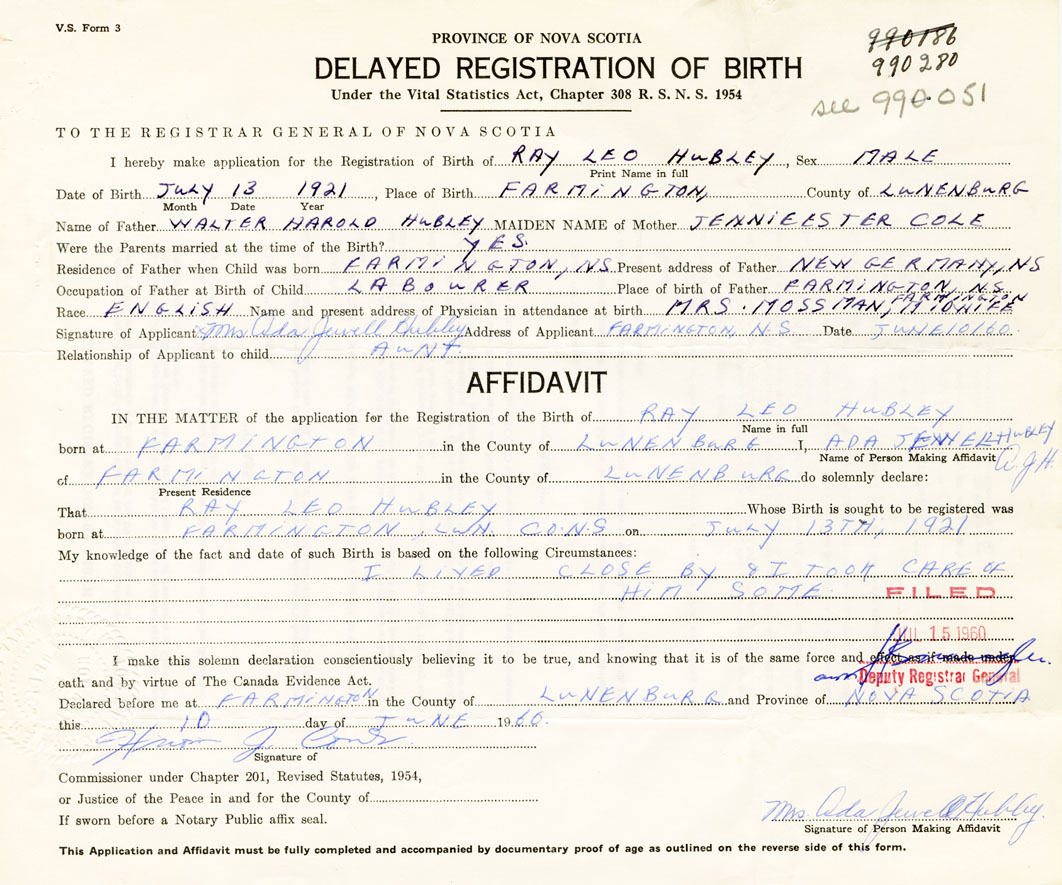 V.S. Form 3
990186
PROVINCE OF NOVA SCOTIA
990280
DELAYED REGISTRATION OF BIRTH
Under the Vital Statistics Act, Chapter 308 R. S. N. S. 1954
see 990051
TO THE REGISTRAR GENERAL OF NOVA SCOTIA
I hereby make application for the Registration of Birth of RAY LEO HUBLEY, Sex MALE
Print Name in full
Date of Birth JULY 13 1921, Place of Birth FARMINGTON, County of LUNENBURG
Month Date Year
Name of Father WALTER HAROLD HUBLEY MAIDEN NAME of Mother JENNIE ESTER COLE
Were the Parents married at the time of the Birth? YES.
Residence of Father when Child was born FARMINGTON, NS. Present address of Father NEW GERMANY, NS
Occupation of Father at Birth of Child LABOURER Place of birth of Father FARMINGTON, N.S.
Race ENGLISH Name and present address of Physician in attendance at birth MRS. MOSSMAN, MIDWIFE FARMINGTON
Signature of Applicant Mrs Ada Jewell Hubley Address of Applicant FARMINGTON, N.S. Date JUNE 10/60.
Relationship of Applicant to child AUNT.
AFFIDAVIT
IN THE MATTER of the application for the Registration of the Birth of RAY LEO HUBLEY
Name in full
born at FARMINGTON in the County of LUNENBURG I, ADA JEWELL HUBLEY
Name of Person Making Affidavit A.J.H.
of FARMINGTON in the County of LUNENBURG do solemnly declare:
Present Residence
That RAY LEO HUBLEY Whose Birth is sought to be registered was
born at FARMINGTON, LUN. CO. N.S on JULY 13TH, 1921
My knowledge of the fact and date of such Birth is based on the following Circumstances:
I LIVED CLOSE BY & I TOOK CARE OF
HIM SOME.
FILED
JUL 15 1960
I make this solemn declaration conscientiously believing it to be true, and knowing that it is of the same force and effect as if made under
oath and by virtue of The Canada Evidence Act.
Deputy Registrar General
Declared before me at FARMINGTON in the County of LUNENBURG and Province of NOVA SCOTIA
this 10 day of JUNE 1960.
Signature of
Commissioner under Chapter 201, Revised Statutes, 1954,
or Justice of the Peace in and for the County of
If sworn before a Notary Public affix seal.
Mrs Ada Jewell Hubley.
Signature of Person Making Affidavit
This Application and Affidavit must be fully completed and accompanied by documentary proof of age as outlined on the reverse side of this form.